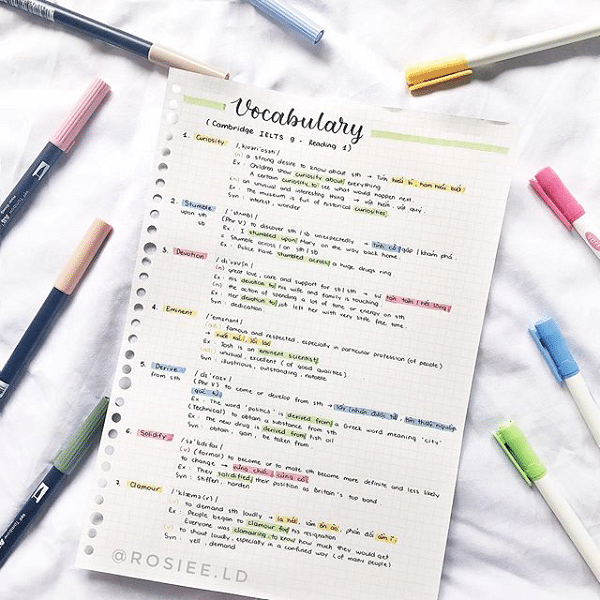 Vocabulary
(Cambridge IELTS 9 - Reading 1)
1. Curiosity /ˌkjʊəriˈɒsəti/
(n) a strong desire to know about sth → Tính hiếu kì, ham hiểu biết
Ex: Children show curiosity about everything
A certain curiosity to see what would happen next.
(n) an unusual and interesting thing → vật hiếm, vật quý.
Ex: The museum is full of historical curiosities.
Syn: interest, wonder
2. Stumble /ˈstʌmbl/
upon sth (Phr V) to discover sth/sb unexpectedly → tình cờ gặp/khám phá.
sb Ex: I stumbled upon Mary on the way back home.
Stumble across/on sth/sb
Ex: Police have stumbled across a huge drugs ring
3. Devotion
(n) great love, care and support for sb/sth →
Ex: His devotion to his wife and family is touching.
(n) the action of spending a lot of time or energy on sth
Ex: Her devotion to job left her with very little free time.
Syn: dedication.
4. Eminent /ˈemɪnənt/
famous and respected, especially in particular profession (of people)
Ex: Josh is an eminent scientist
unusual, excellent (of good qualities)
Syn: illustrious, outstanding, notable
5. Derive /dɪˈraɪv/
from sth (Phr V) to come or develop from sth →
Ex: The word 'politics' is derived from a Greek word meaning 'city'
(Technical) to obtain a substance from sth
Ex: The new drug is derived from fish oil
Syn: obtain, gain, be taken from
6. Solidify /səˈlɪdɪfaɪ/
(v) (formal) to become or to make sth become more definite and less likely
to change → vững chắc, củng cố
Ex: They solidified their position as Britain's top band.
Syn: stiffen, harden
7. Clamour /ˈklæmə(r)/
to demand sth loudly → la hét, làm ồn ào, phản đối ầm ĩ
Ex: People began to clamour for his resignation
Everyone was clamouring to know how much they would get
to shout loudly, especially in a confused way (of many people)
Syn: yell, demand
@ROSIEE.LD